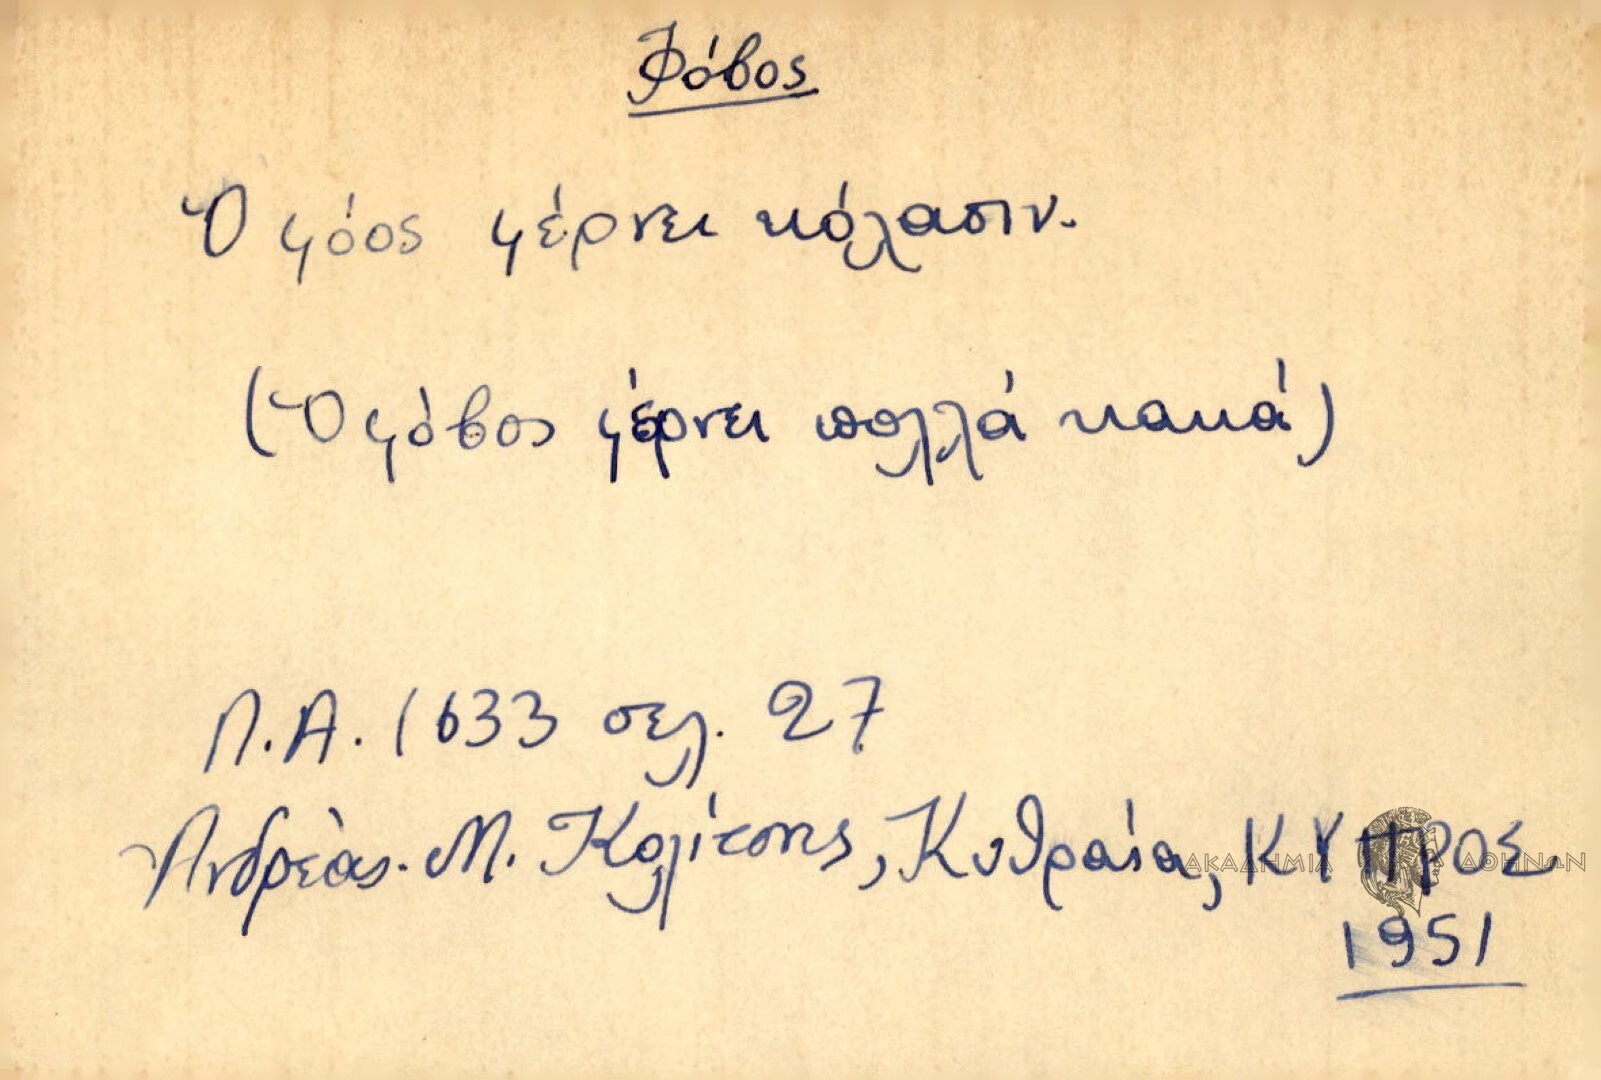 Φόβος
Ὁ φόος φέρνει κόλασιν.
(Ὁ φόβος φέρνει πολλά κακά)
Π.Α. 1633 σελ. 27
Ἀνδρέας. Μ. Κολίτσης, Κυθραία, ΚΥΠΡΟΣ.
ΑΚΑΔΗΜΙΑ ΑΘΗΝΩΝ
1951